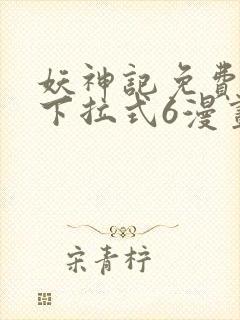 妖神記免費
下拉式6漫畫
宋青柠